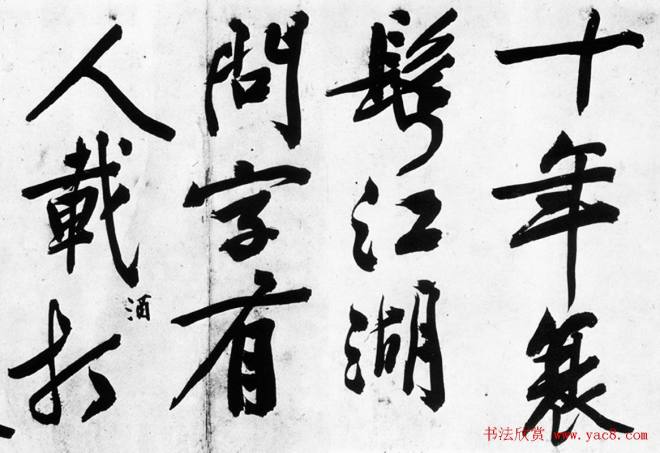 十年衰
鬢江湖
問字有
人載酒扣
书法欣赏 www.yac8.com